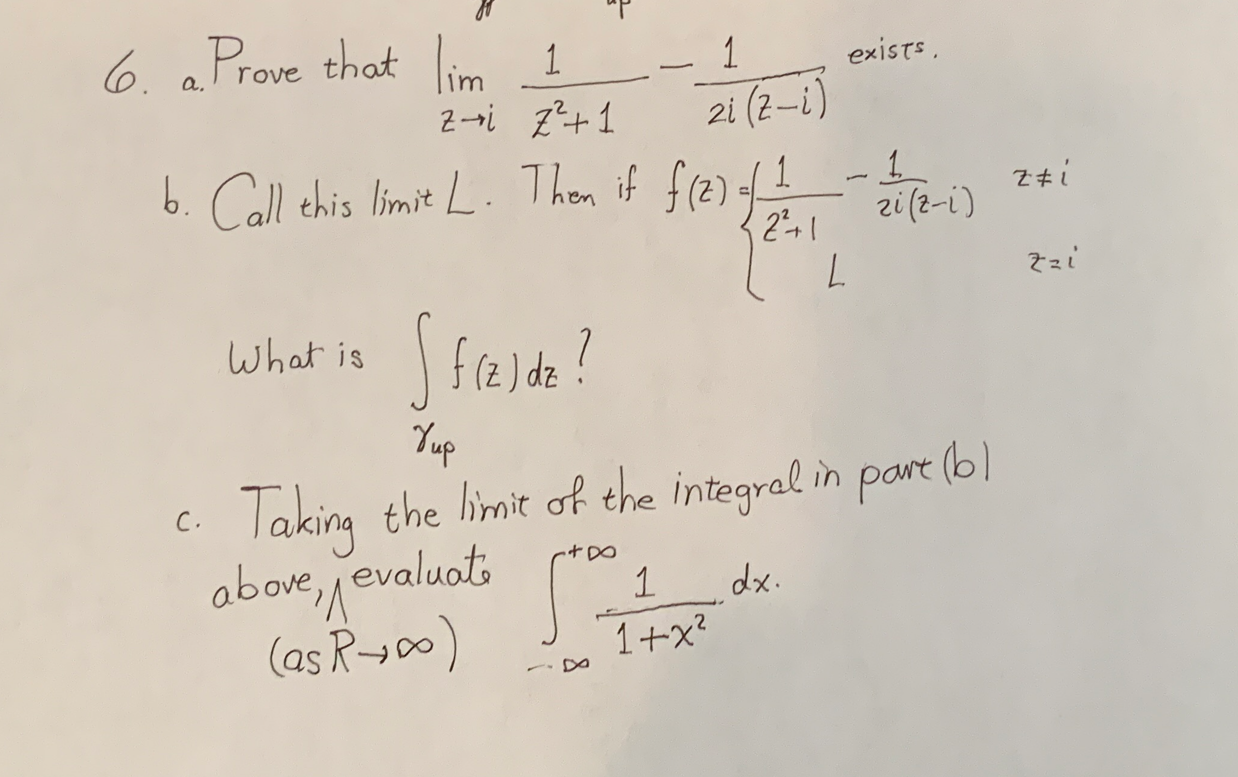 up
6. a. Prove that lim z→i 1/(z²+1) − 1/(2i(z−i)) exists.
b. Call this limit L. Then if f(z) = { 1/(z²+1) − 1/(2i(z−i)) z≠i
L z=i
What is ∫γup f(z) dz?
c. Taking the limit of the integral in part (b)
above, ∧ evaluate ∫−∞^+∞ 1/(1+x²) dx.
(as R→∞)